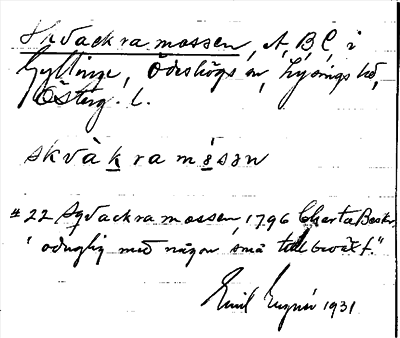 Skvackra mossen, A, B, C, i
Gyttinge, Ödeshögs sn, Lysings hd,
Österg. l.
skvàkramósən
# 22 Sqvackra mossen, 1796 Charta Beskr.
"oduglig med någon små tall bväxt."
Emil 1931